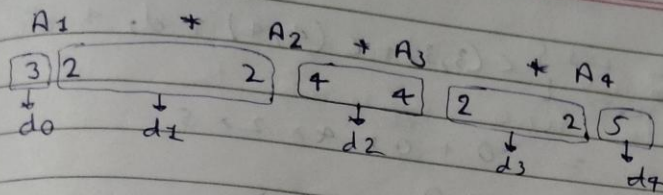 A1 * A2 * A3 * A4
3 2 2 4 4 2 2 5
d0 d1 d2 d3 d4